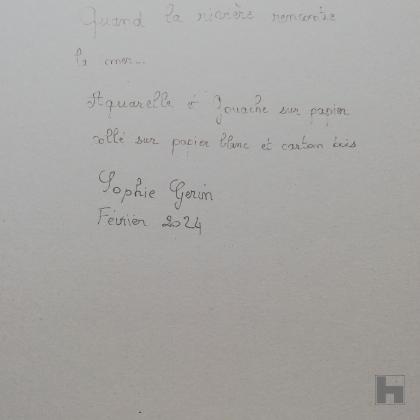 Quand la rivière rencontre
la mer...
Aquarelle & Gouache sur papier
collé sur papier blanc et carton gris
Sophie Gerin
Février 2024